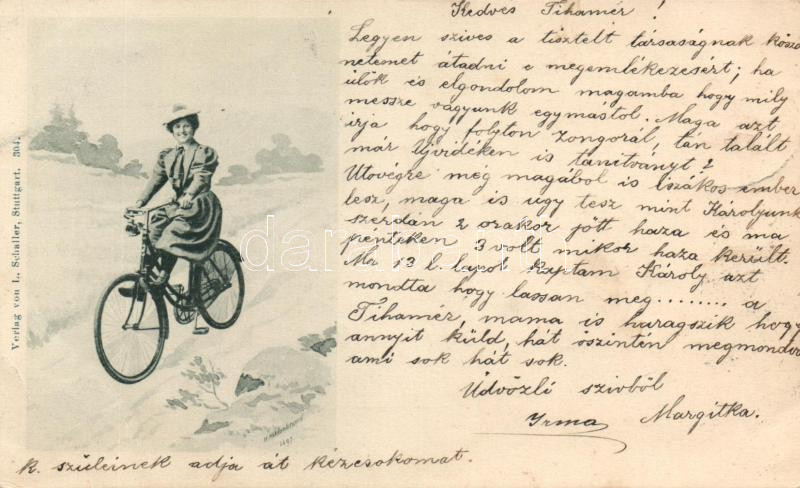 Kedves Tihamér!
Legyen szives a tisztelt társaságnak köszö
netemet átadni e megemlékezesért; ha
ülök és elgondolom magamba hogy mily
messze vagyunk egymastol. Maga azt
irja hogy folyton zongorál, tán talált
már Ujvidéken is tanitványt?
Utovégre még magából is iszákos ember
lesz, maga is ugy tesz mint Károlyunk
szerdán 2 orakor jött haza és ma
pénteken 3 volt mikor haza került.
Ma 13 l. lapot kaptam Károly azt
mondta hogy lassan meg........ a
Tihamér, mama is haragszik hogy
annyit küld, hát öszintén megmondva
ami sok hát sok.
Üdvözli szivböl
Irma Margitka.
k. szüleinek adja át kézcsokomat.
Verlag von L. Schaller, Stuttgart. 304.
1897
darabanth.com